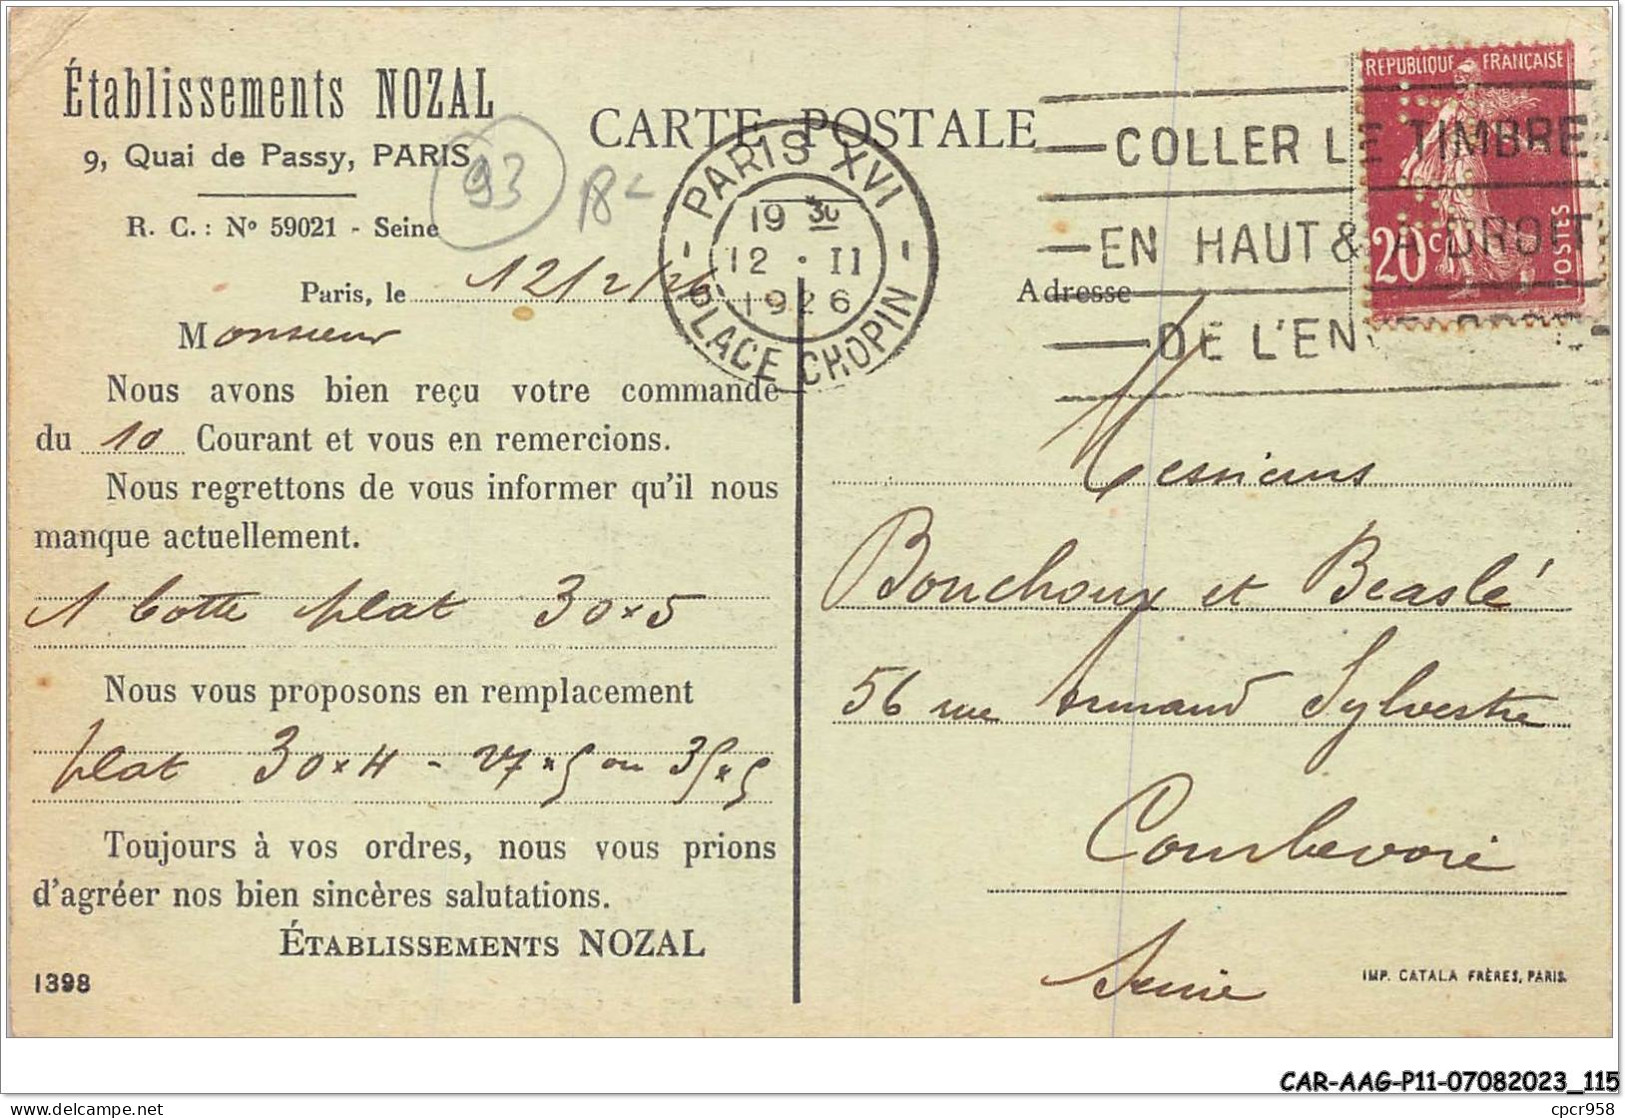 Établissements NOZAL
9, Quai de Passy, PARIS
R. C. : Nº 59021 - Seine
93
18-
Paris, le 12/2/26
Monsieur
Nous avons bien reçu votre commande
du 10 Courant et vous en remercions.
Nous regrettons de vous informer qu'il nous
manque actuellement.
1 botte plat 30x5
Nous vous proposons en remplacement
plat 30x4 - 27x5 ou 35x5
Toujours à vos ordres, nous vous prions
d'agréer nos bien sincères salutations.
ÉTABLISSEMENTS NOZAL
1398
CARTE POSTALE
PARIS XVI
19 30
12 · II
1926
PLACE CHOPIN
COLLER LE TIMBRE
EN HAUT & A DROIT
DE L'EN
REPUBLIQUE FRANÇAISE
20c
POSTES
Adresse
Messieurs
Bouchoux et Beaslé
56 rue Armand Sylvestre
Courbevoie
Seine
IMP. CATALA FRÈRES, PARIS.
CAR-AAG-P11-07082023_115
delcampe.net
cpcr958